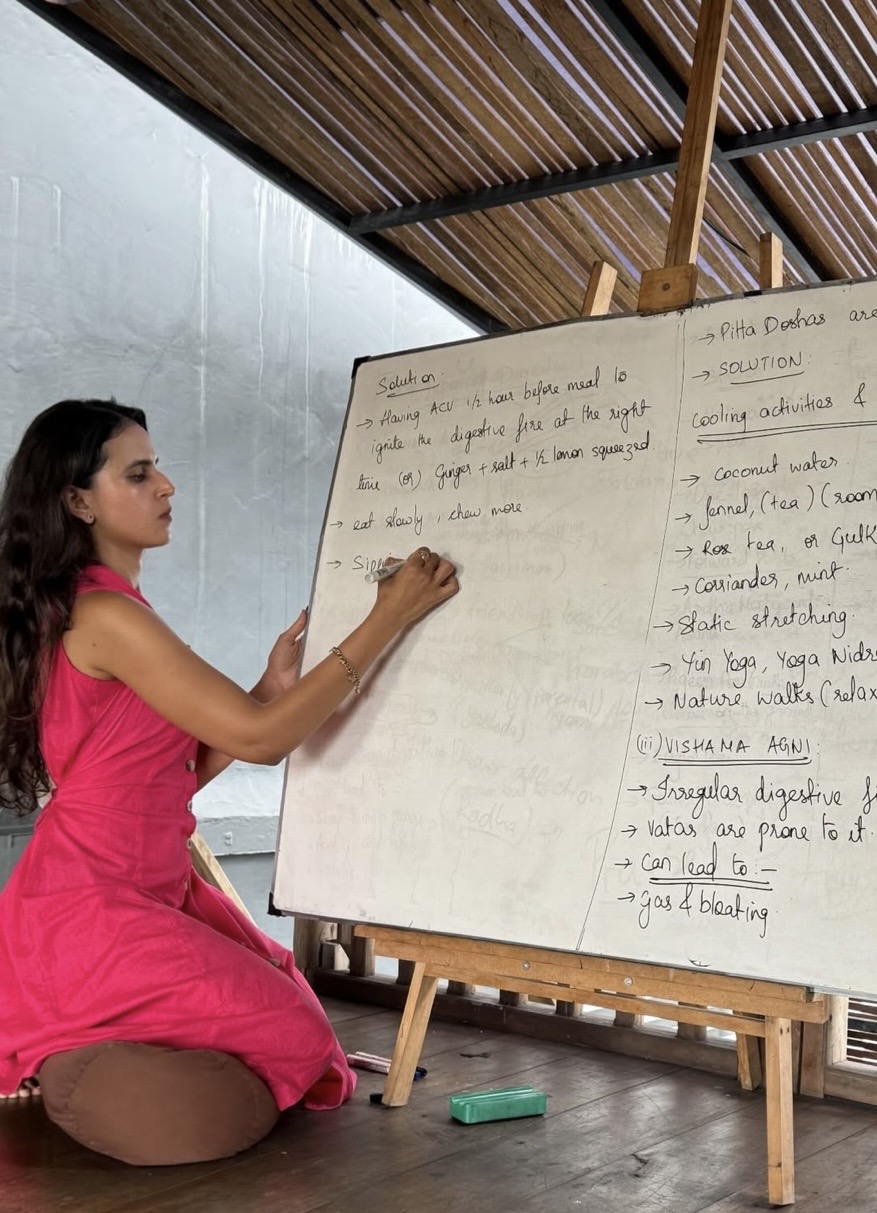 Solution:
→ Having ACV 1/2 hour before meal to
ignite the digestive fire at the right
time (or) Ginger + salt + 1/2 lemon squeezed
→ eat slowly, chew more
→ Sippi
→ Pitta Doshas are
→ SOLUTION:
Cooling activities &
→ coconut water
→ fennel, (tea) (room
→ Rose tea, or Gulk
→ Corriander, mint.
→ Static stretching.
→ Yin Yoga, Yoga Nidr
→ Nature walks (relax
(ii) VISHAMA AGNI:
→ Irregular digestive fi
→ Vatas are prone to it.
→ Can lead to:-
→ gas & bloating